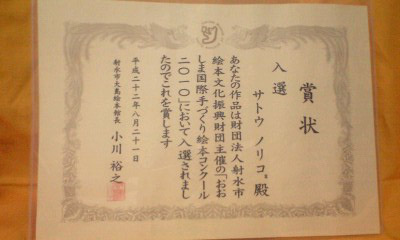 賞状
入選
サトウ ノリコ 殿
あなたの作品は財団法人射水市
絵本文化振興財団主催の「おお
しま国際手づくり絵本コンクール
二〇一〇」において入選されまし
たのでこれを賞します
平成二十二年八月二十一日
射水市大島絵本館長 小川 裕之